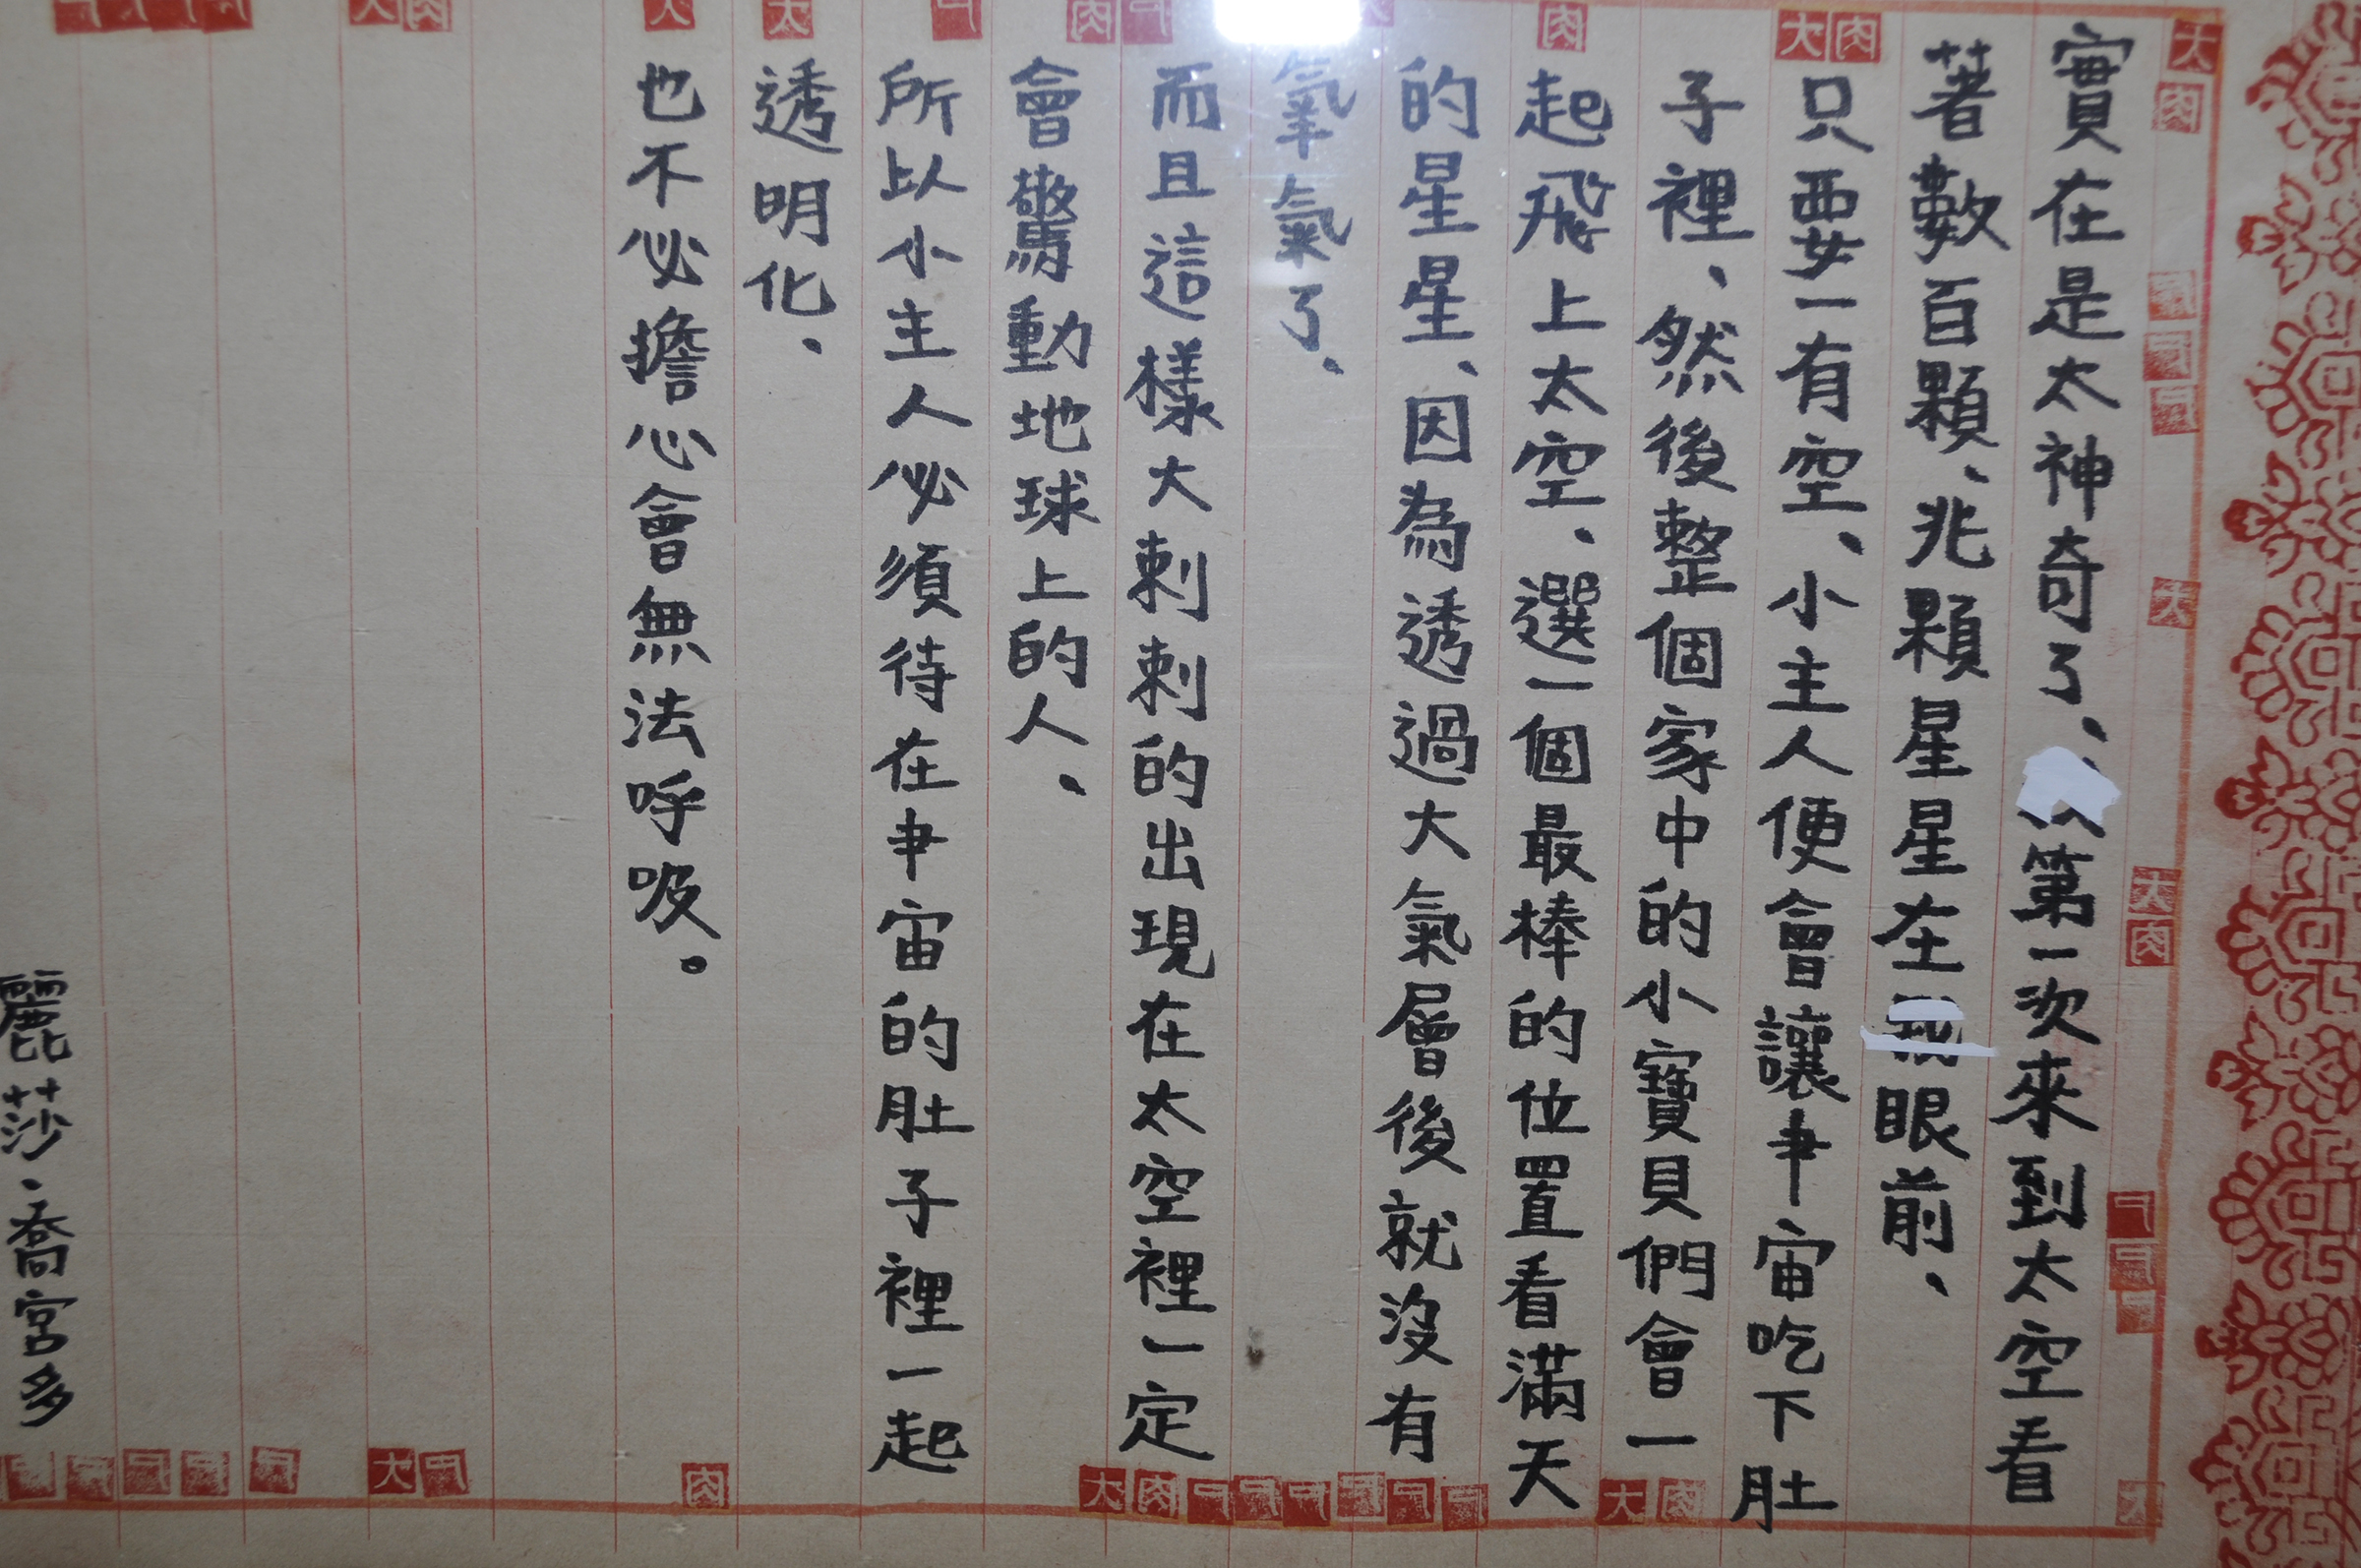 實在是太神奇了、第一次來到太空看
著數百顆、兆顆星星在眼前、
只要一有空、小主人便會讓宙吃下肚
子裡、然後整個家中的小寶貝們會一
起飛上太空、選一個最棒的位置看滿天
的星星、因為透過大氣層後就沒有
氧氣了、
而且這樣大剌剌的出現在太空裡一定
會驚動地球上的人、
所以小主人必須待在宙的肚子裡一起
透明化、
也不必擔心會無法呼吸。
麗莎·喬宮多